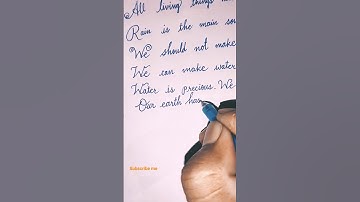 All living things
Rain is the main
We should not make
We can make water
Water is precious. We
Our earth has
Subscribe me